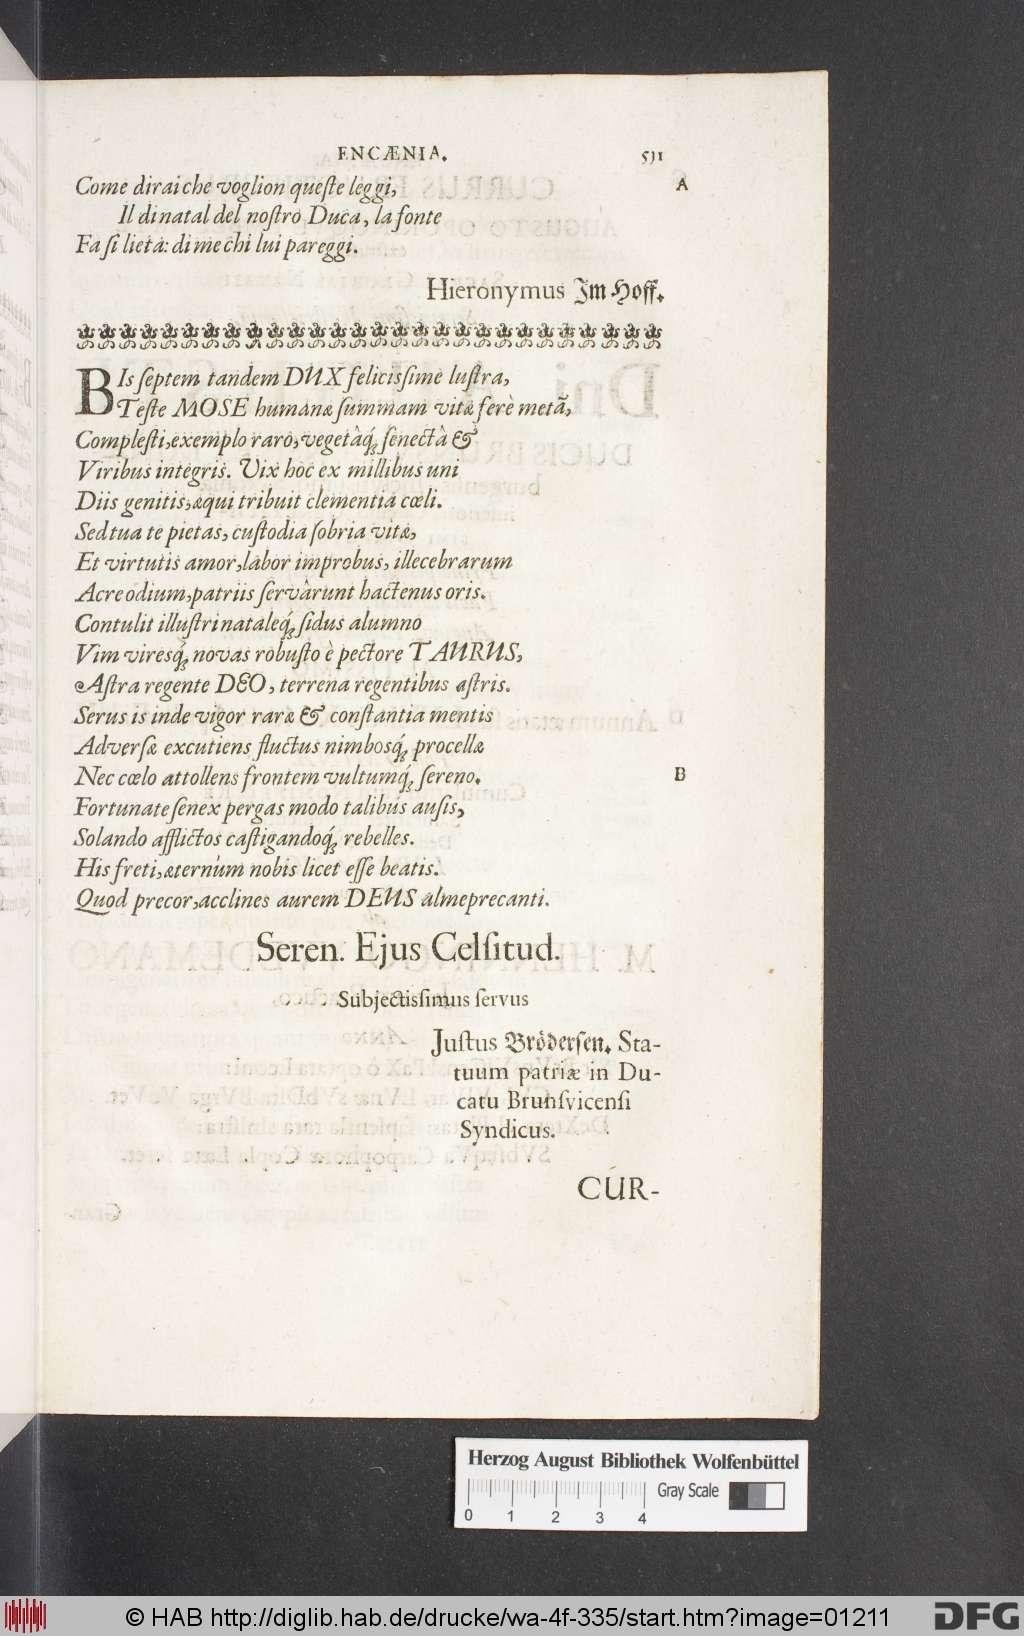 ENCÆNIA. 511
Come dirai che voglion queſte leggi, A
Il di natal del noſtro Duca, la fonte
Fa ſi lieta: di me chi lui pareggi.
Hieronymus Im Hoff.
BIs ſeptem tandem DUX feliciſsime luſtra,
Teſte MOSE humanæ ſummam vitæ ferè metã,
Compleſti, exemplo raro, vegetàq́; ſenectà &
Viribus integris. Vix hoc ex millibus uni
Diis genitis, æqui tribuit clementia cœli.
Sed tua te pietas, cuſtodia ſobria vitæ,
Et virtutis amor, labor improbus, illecebrarum
Acre odium, patriis ſervârunt hactenus oris.
Contulit illuſtri nataleq́; ſidus alumno
Vim viresq́; novas robuſto è pectore TAURUS,
Aſtra regente DEO, terrena regentibus aſtris.
Serus is inde vigor raræ & conſtantia mentis
Adverſæ excutiens fluctus nimbosq́; procellæ
Nec cœlo attollens frontem vultumq́; ſereno. B
Fortunate ſenex pergas modo talibus auſis,
Solando afflictos caſtigandoq́; rebelles.
His freti, æternùm nobis licet eſſe beatis.
Quod precor, acclines aurem DEUS alme precanti.
Seren. Ejus Celſitud.
Subjectiſsimus ſervus
Juſtus Brödersen. Sta-
tuum patriæ in Du-
catu Brunſvicenſi
Syndicus.
CUR-
Herzog August Bibliothek Wolfenbüttel
Gray Scale
0 1 2 3 4
© HAB http://diglib.hab.de/drucke/wa-4f-335/start.htm?image=01211
DFG